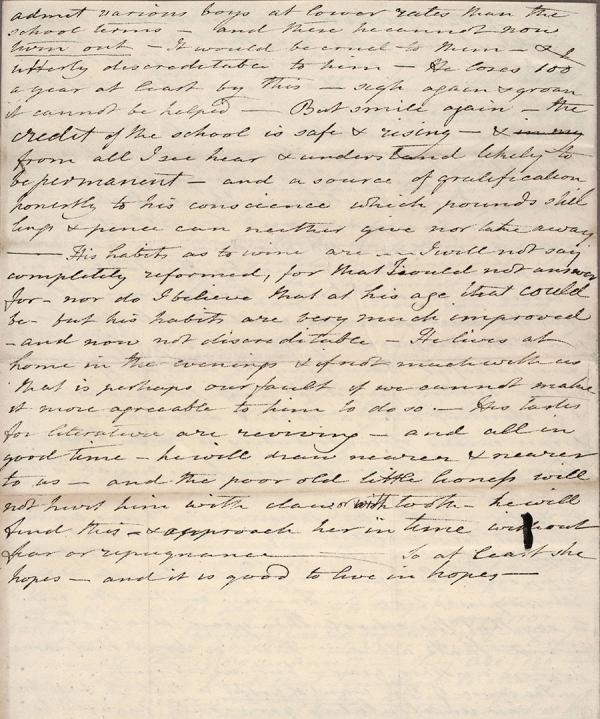 admit various boys at lower rates than the
school terms — and these he cannot now
turn out — It would be cruel to them — & 
utterly discreditable to him — He loses 100£
a year at least by this — sigh again & groan
it cannot be helped — But smile again — the
credit of the school is safe & rising — & in my
from all I see hear & understand likely to
be permanent — and a source of gratification
honestly to his conscience which pounds shil
lings & pence can neither give nor take away
— His habits as to wine are — I will not say
completely reformed, for that I could not answer
for — nor do I believe that at his age that could
be — but his habits are very much improved
— and now not discreditable — He lives at
home in the evenings & if not much with us
that is perhaps our fault if we cannot make
it more agreeable to him to do so — His tastes
for literature are reviving — and all in
good time — he will draw nearer & nearer
to us — and the poor old little lioness will
not hurt him with claw or with tooth — he will
find this — & approach her in time without
fear or repugnance — So at least she
hopes — and it is good to live in hopes —